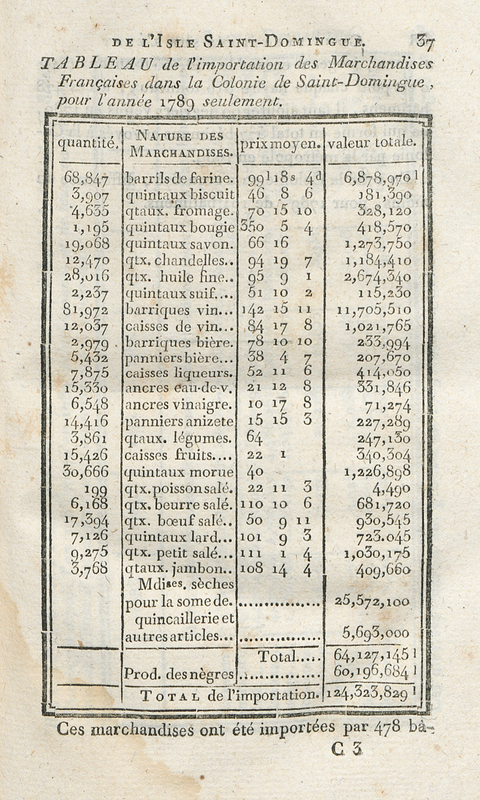 DE L'ISLE SAINT-DOMINGUE. 37
TABLEAU de l'importation des Marchandises
Françaises dans la Colonie de Saint-Domingue,
pour l'année 1789 seulement.
quantité. NATURE DES MARCHANDISES. prix moyen. valeur totale.
68,847 barrils de farine. 99 l 18 s 4 d 6,878,970 l
3,907 quintaux biscuit 46 8 6 181,390
4,635 qtaux. fromage. 70 15 10 328,120
1,195 quintaux bougie 350 5 4 418,570
19,068 quintaux savon. 66 16 1,273,750
12,470 qtx. chandelles.. 94 19 7 1,184,410
28,016 qtx. huile fine.. 95 9 1 2,674,340
2,237 quintaux suif.... 51 10 2 115,230
81,972 barriques vin... 142 15 11 11,705,510
12,037 caisses de vin... 84 17 8 1,021,765
2,979 barriques bière. 78 10 10 233,994
5,432 panniers bière... 38 4 7 207,670
7,875 caisses liqueurs. 52 11 6 414,050
15,330 ancres eau-de-v. 21 12 8 331,846
6,548 ancres vinaigre. 10 17 8 71,274
14,416 panniers anizete 15 15 3 227,289
3,861 qtaux. légumes. 64 247,130
15,426 caisses fruits.... 22 1 340,304
30,666 quintaux morue 40 1,226,898
199 qtx. poisson salé. 22 11 3 4,490
6,168 qtx. beurre salé. 110 10 6 681,720
17,394 qtx. bœuf salé.. 50 9 11 930,545
7,126 quintaux lard... 101 9 3 723,045
9,275 qtx. petit salé... 111 1 4 1,030,175
3,768 qtaux. jambon.. 108 14 4 409,660
Mdises. sèches
pour la some de. .............. 25,572,100
quincaillerie et
autres articles... .............. 5,693,000
Total..... 64,127,145 l
Prod. des nègres .............. 60,196,684 l
TOTAL de l'importation. 124,323,829 l
Ces marchandises ont été importées par 478 bâ-
C 3